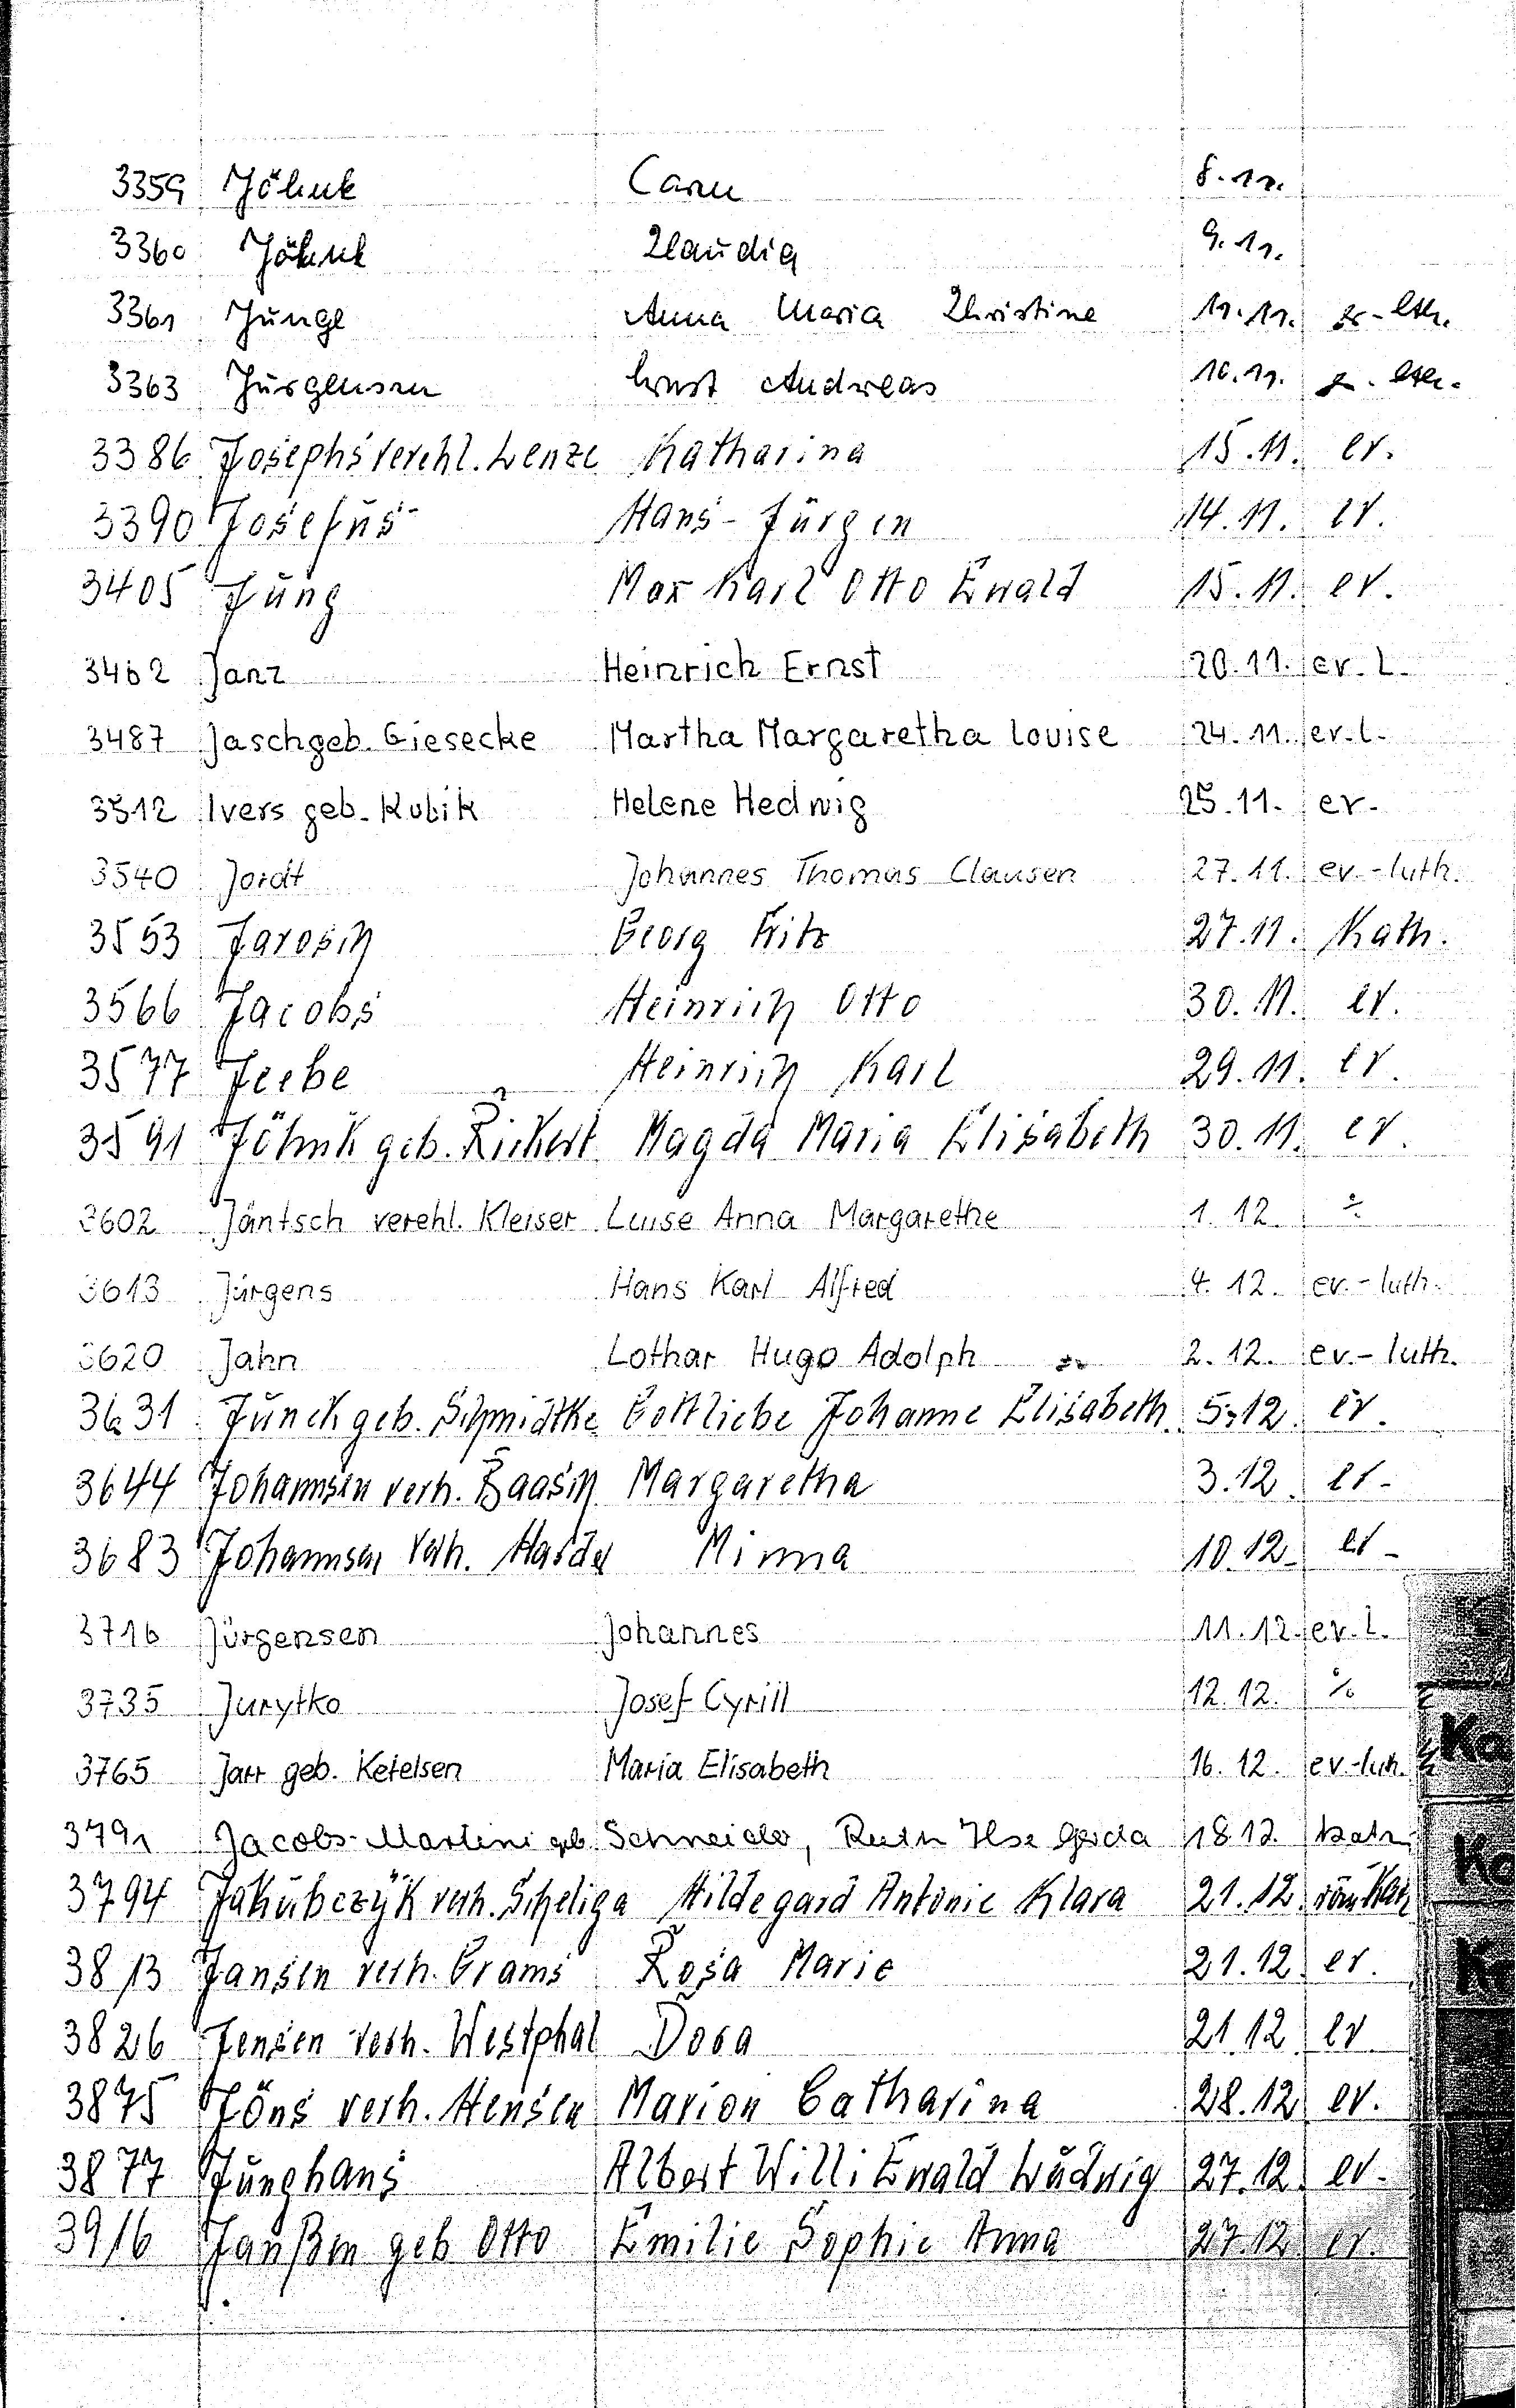 3359 Jöhnk Caren 8.11.
3360 Jöhnk Claudia 9.11.
3361 Junge Anna Maria Christine 11.11. ev-lth.
3363 Jürgensen Ernst Andreas 10.11. ev-lth.
3386 Josephs verehl. Lenze Katharina 15.11. ev.
3390 Josefus Hans-Jürgen 14.11. ev.
3405 Jung Max Karl Otto Ewald 15.11. ev.
3462 Janz Heinrich Ernst 20.11. ev. L.
3487 Jasch geb. Giesecke Martha Margaretha Louise 24.11. ev. l.
3512 Ivers geb. Kubik Helene Hedwig 25.11. ev.
3540 Jordt Johannes Thomas Clausen 27.11. ev.-luth.
3553 Jarosch Georg Fritz 27.11. Kath.
3566 Jacobs Heinrich Otto 30.11. ev.
3577 Jeebe Heinrich Karl 29.11. ev.
3591 Jöhnk geb. Rickert Magda Maria Elisabeth 30.11. ev.
3602 Jäntsch verehl. Kleiser Luise Anna Margarethe 1.12. ÷
3613 Jürgens Hans Karl Alfred 4.12. ev.-luth.
3620 Jahn Lothar Hugo Adolph 2.12. ev.-luth.
3631 Junck geb. Schmidtke Gottliebe Johanne Elisabeth 5.12. ev.
3644 Johannsen verh. Baasch Margaretha 3.12. ev.
3683 Johannsen verh. Harder Minna 10.12. ev.
3716 Jürgensen Johannes 11.12. ev. L.
3735 Jurytko Josef Cyrill 12.12. %
3765 Jarr geb. Ketelsen Maria Elisabeth 16.12. ev-luth.
3791 Jacobs-Martini geb. Schneider, Ruth Ilse Gerda 18.12. kath.
3794 Jakubczyk verh. Scheliga Hildegard Antonie Klara 21.12. röm Kath
3813 Jansen verh. Grams Rosa Marie 21.12. ev.
3826 Jensen verh. Westphal Dora 21.12. ev.
3875 Jöns verh. Hensen Marion Catharina 28.12. ev.
3877 Junghans Albert Willi Ewald Ludwig 27.12. ev.
3916 Janßen geb Otto Emilie Sophie Anna 27.12. ev.